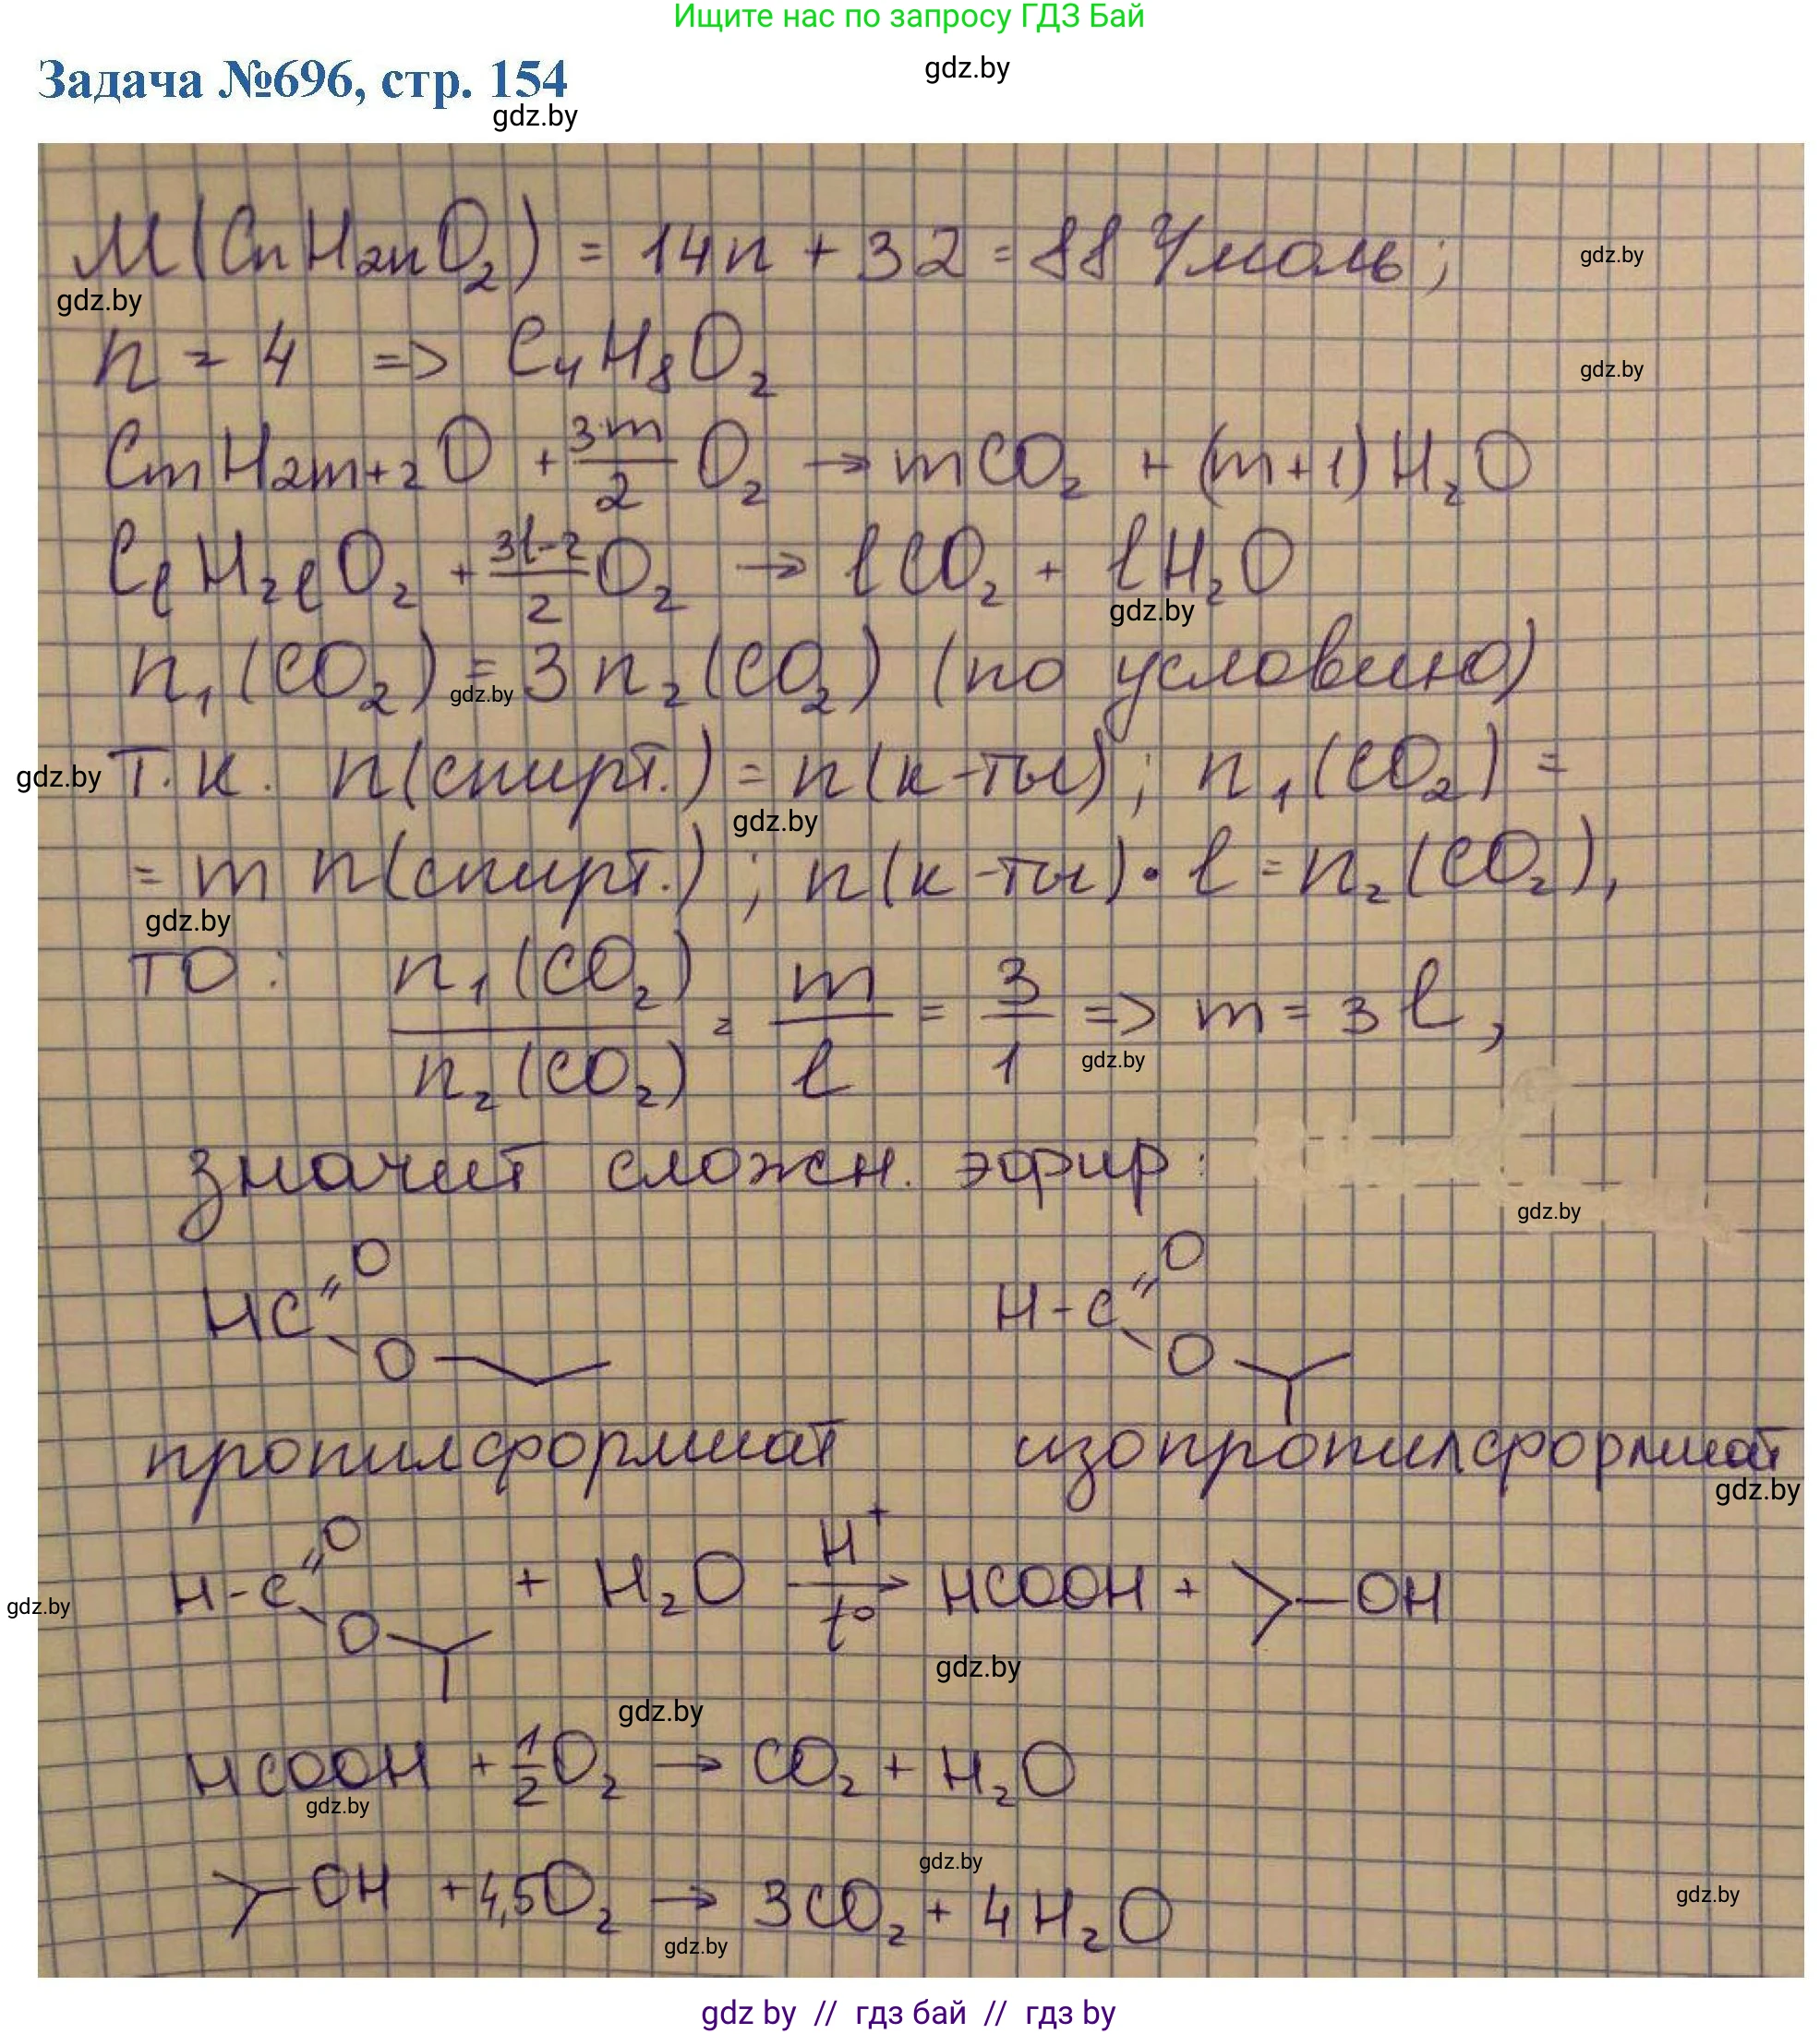 Ищите нас по запросу ГДЗ Бай
gdz.by
Задача №696, стр. 154
gdz.by
M(CnH2nO2) = 14n + 32 = 88 г/моль;
gdz.by
gdz.by
n = 4 => C4H8O2
gdz.by
CmH2m+2O + 3m/2 O2 → mCO2 + (m+1)H2O
ClH2lO2 + 3l-2/2 O2 → lCO2 + lH2O
gdz.by
n1(CO2) = 3n2(CO2) (по условию)
gdz.by
gdz.by
т.к. n(спирт.) = n(к-ты); n1(CO2) =
gdz.by
= m n(спирт.); n(к-ты)·l = n2(CO2),
gdz.by
то: n1(CO2)/n2(CO2) = m/l = 3/1 => m = 3l,
gdz.by
значит сложн. эфир:
gdz.by
HC O O
H-C O O
пропилформиат изопропилформиат
gdz.by
H-C O O + H2O H+ t° → HCOOH + -OH
gdz.by
gdz.by
gdz.by
HCOOH + 1/2 O2 → CO2 + H2O
gdz.by
gdz.by
-OH + 4,5O2 → 3CO2 + 4H2O
gdz.by
gdz.by
gdz by // гдз бай // гдз by